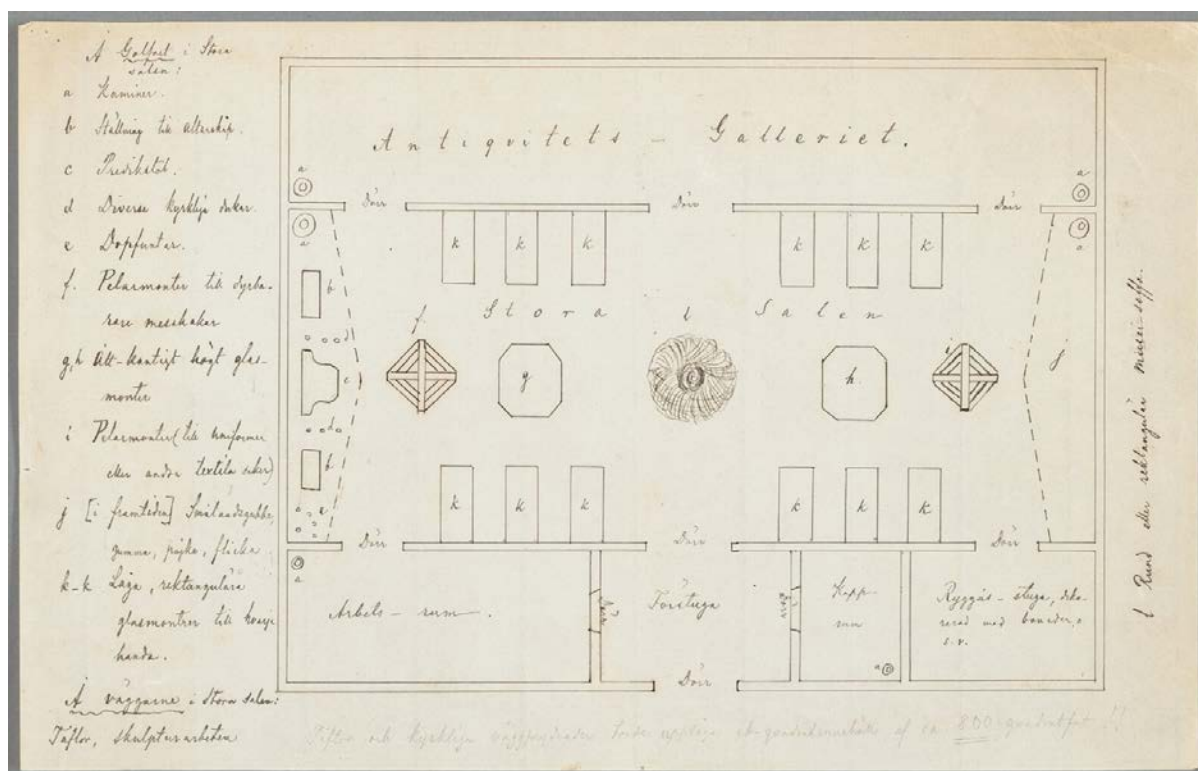 Å Golfvet i Stora
salen:
a Kaminer.
b Ställning till altarskåp.
c Predikstol.
d Diverse kyrkliga dukar.
e Dopfuntar.
f. Pelarmonter till dyrba-
rare messhakar
g, h Ått-kantigt högt glas-
monter
i Pelarmonter (till uniformer
eller andra textila saker)
j [i framtiden] Smålandsgubbe,
gumma, pojke, flicka
k-k Låga, rektangulära
glasmontrer till hvarje-
handa.
Å väggarne i Stora salen:
Taflor, skulpturarbeten
Antiqvitets-Galleriet.
a
a
Dörr
Dörr
Dörr
a
a
k
k
k
k
k
k
b
f
Stora
l
Salen
d
c
g
h
i
j
d
b
k
k
k
k
k
k
e
Dörr
Dörr
Dörr
a
Arbets-rum.
Dörr
Förstuga
Dörr
Kapp-
rum
a
Ryggås-stuga, deko-
rerad med bonader, o.
s.v.
Dörr
l Rund eller rektangulär musei-soffa.
Taflor och kyrkliga väggprydnader torde upptaga af ca 800 qvadratfot!!